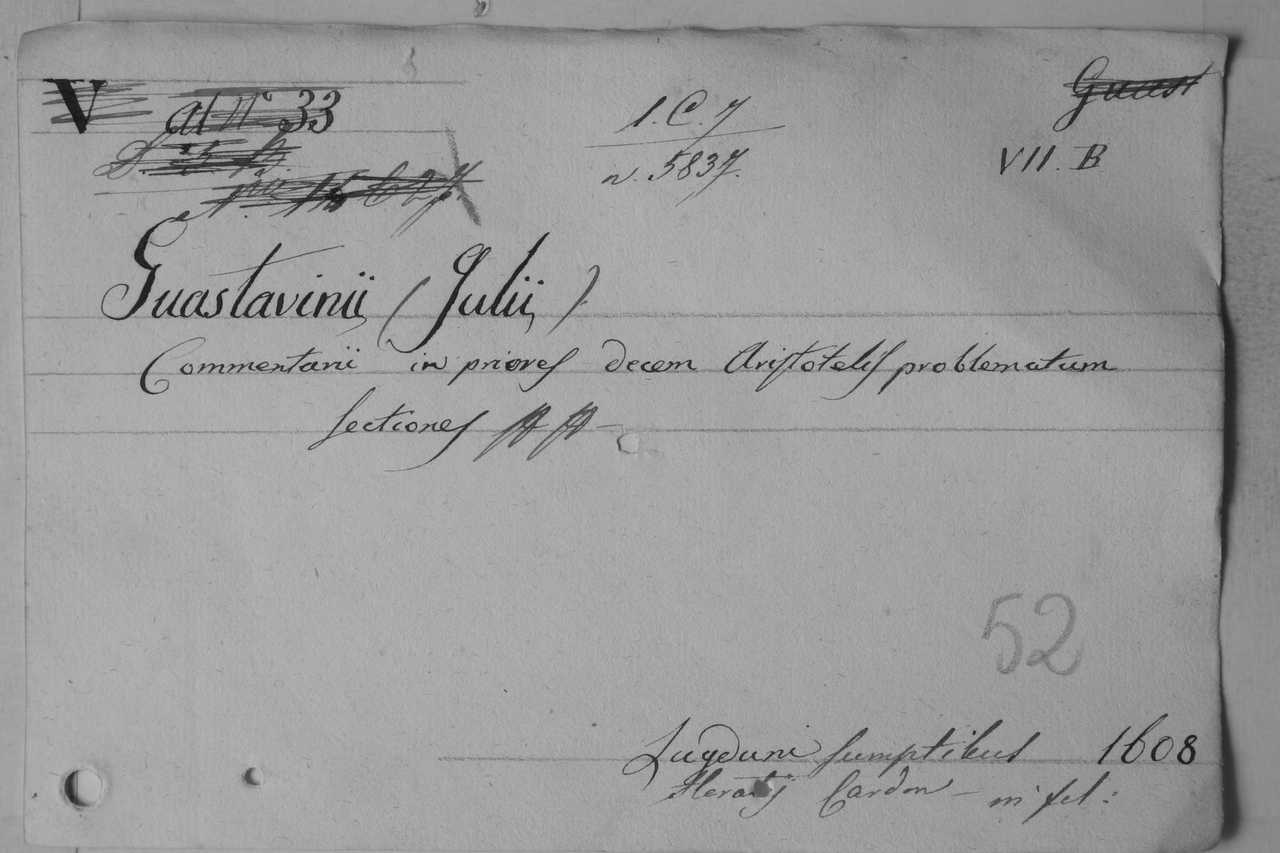 V at N° 33
1. C. 7
n. 5837.
Guast
VII. B
Guastavinii (Julii)
Commentarii in priores decem Aristotelis problematum
sectiones
52
Lugduni sumptibus 1608
Horatij Cardon – in fol: